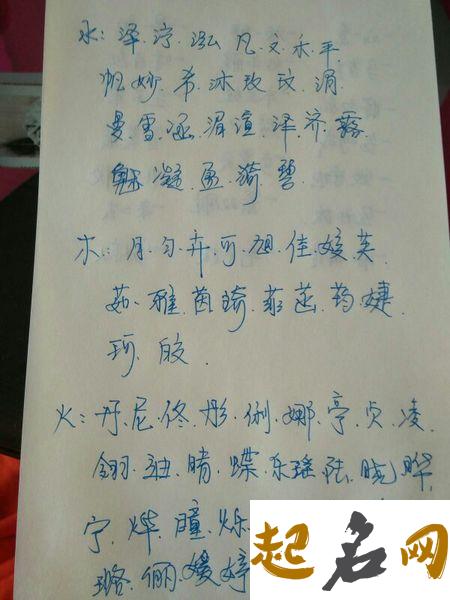 水:泽.泞.泓.凡.文.禾.平.
帆妙.希.沐玫.玟.湄.
曼雪.涵.湄渲.泽.济.露.
魅.凝.盈.漪.碧.
木:月.匀.卉.可.旭.佳.媛.芙.
茹.雅.茵.琦.菲.蕊.药.婕.
珂.皎.
火:丹.尼.佟.彤.俐.娜.亭.贞.凌.
翎.迪.晴.蝶.东.瑶.陆.晓.晔.
宁.烨.瞳.烁.
璐.俪.嫒.婷
起名网